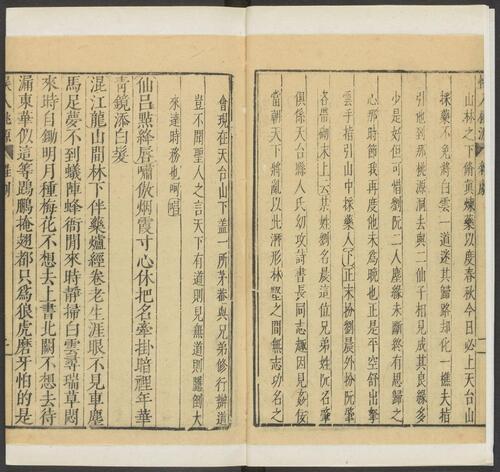 山林之下脩眞煉藥以度春秋今日必上天台山
採藥不免將白雲一道迷其歸路却化一樵夫指
引他到那桃源洞去與二仙子相見成其良緣多
少是好但可惜劉阮二人塵緣未斷終有思歸之
心那時節我再度他未爲晚也正是平空舒出拏
雲手指引山中採藥人下正末扮劉晨外扮阮肇
各帶砌末上云某姓劉名晨這位兄弟姓阮名肇
俱係天台縣人氏幼攻詩書長同志趣因見奸佞
當朝天下將亂以此潛形林壑之間無志功名之
會現在天台山下蓋一所茅菴與兄弟修行辦道
豈不聞聖人之言天下有道則見無道則隱倒大
來達時務也呵唱
仙呂點絳唇嘯傲烟霞寸心休把名牽掛暗裡年華
靑鏡添白髮
混江龍山間林下伴藥爐經卷老生涯眼不見車塵
馬足夢不到蟻陣蜂衙閒來時靜掃白雲尋瑞草悶
來時自鋤明月種梅花不想去上書北闕不想去待
漏東華似這等鵾鵬掩翅都只爲狼虎磨牙怕的是